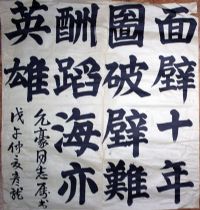 面壁十年
圖破壁難
酬蹈海亦
英雄
豪同志属书
戊子仲夏